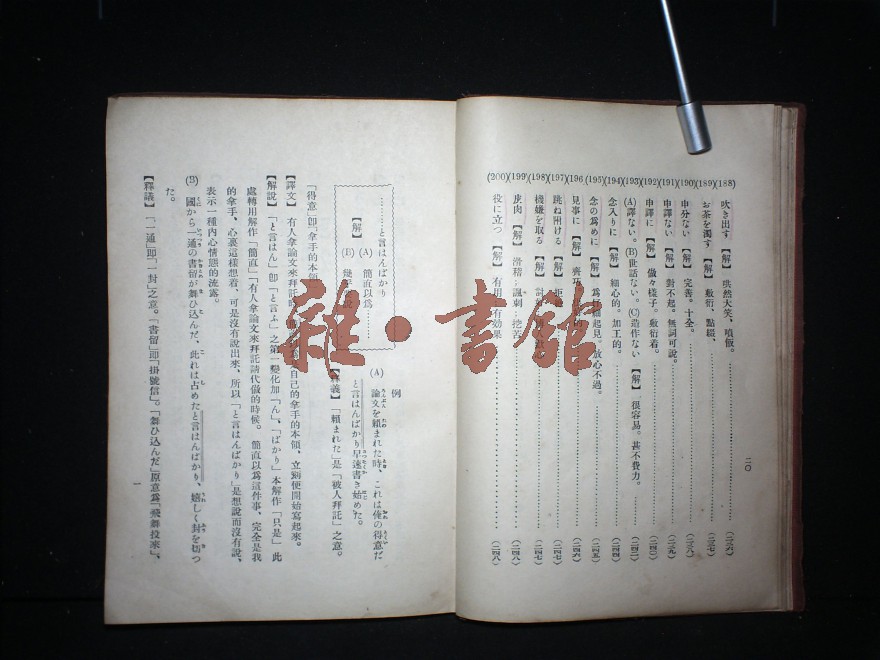 二〇
(188) 吹き出す 【解】 哄然大笑、噴飯。 (二三六)
(189) お茶を濁す 【解】 敷衍、點綴、 (二三七)
(190) 申分ない 【解】 完善。十全。 (二三八)
(191) 申譯ない 【解】 對不起。無詞可說。 (二三九)
(192) 申譯に 【解】 做々樣子。敷衍着。 (二四〇)
(193) (A)譯ない。(B)世話ない。(C)造作ない 【解】 很容易。甚不費力。
(194) 念入りに 【解】 細心的。加工的。 (二四四)
(195) 念の爲めに 【解】 爲 起見。放心不過。 (二四五)
(196) 見事に 【解】 齊 的 (二四六)
(197) 跳ね附ける 【解】 拒 (二四七)
(198) 機嫌を取る 【解】 討 (二四七)
(199) 皮肉 【解】 滑稽；諷刺；挖苦 (二四八)
(200) 役に立つ 【解】 有用 有効果 (二四八)
………と言はんばかり
【解】 (A) 簡直以爲……
(B) 幾乎
例
(A) 論文を頼まれた時、これは俺の得意だ
と言はんばかり早速書き始めた。
【釋義】 「頼まれた」是「被人拜託」之意。
「得意」卽「拿手的本領」
【譯文】 有人拿論文來拜託 自己的拿手的本領、立刻便開始寫起來。
【解說】 「と言はん」卽「と言ふ」之第一變化加「ん」、「ばかり」本解作「只是」 此
處轉用解作「簡直」「有人拿論文來拜託請代做的時候。 簡直以爲這件事、完全是我
的拿手、心裏這樣想着、可是沒有說出來、所以「と言はんばかり」是想說而沒有說、
表示一種內心情態的流露。
(B) 國から一通の書留が舞ひ込んだ、此れは占めたと言はんばかり、嬉しく封を切つ
た。
【釋議】 「一通」卽「一封」之意。「書留」卽「掛號信」。「舞ひ込んだ」原意爲「飛舞投來」、
一
雜·書館